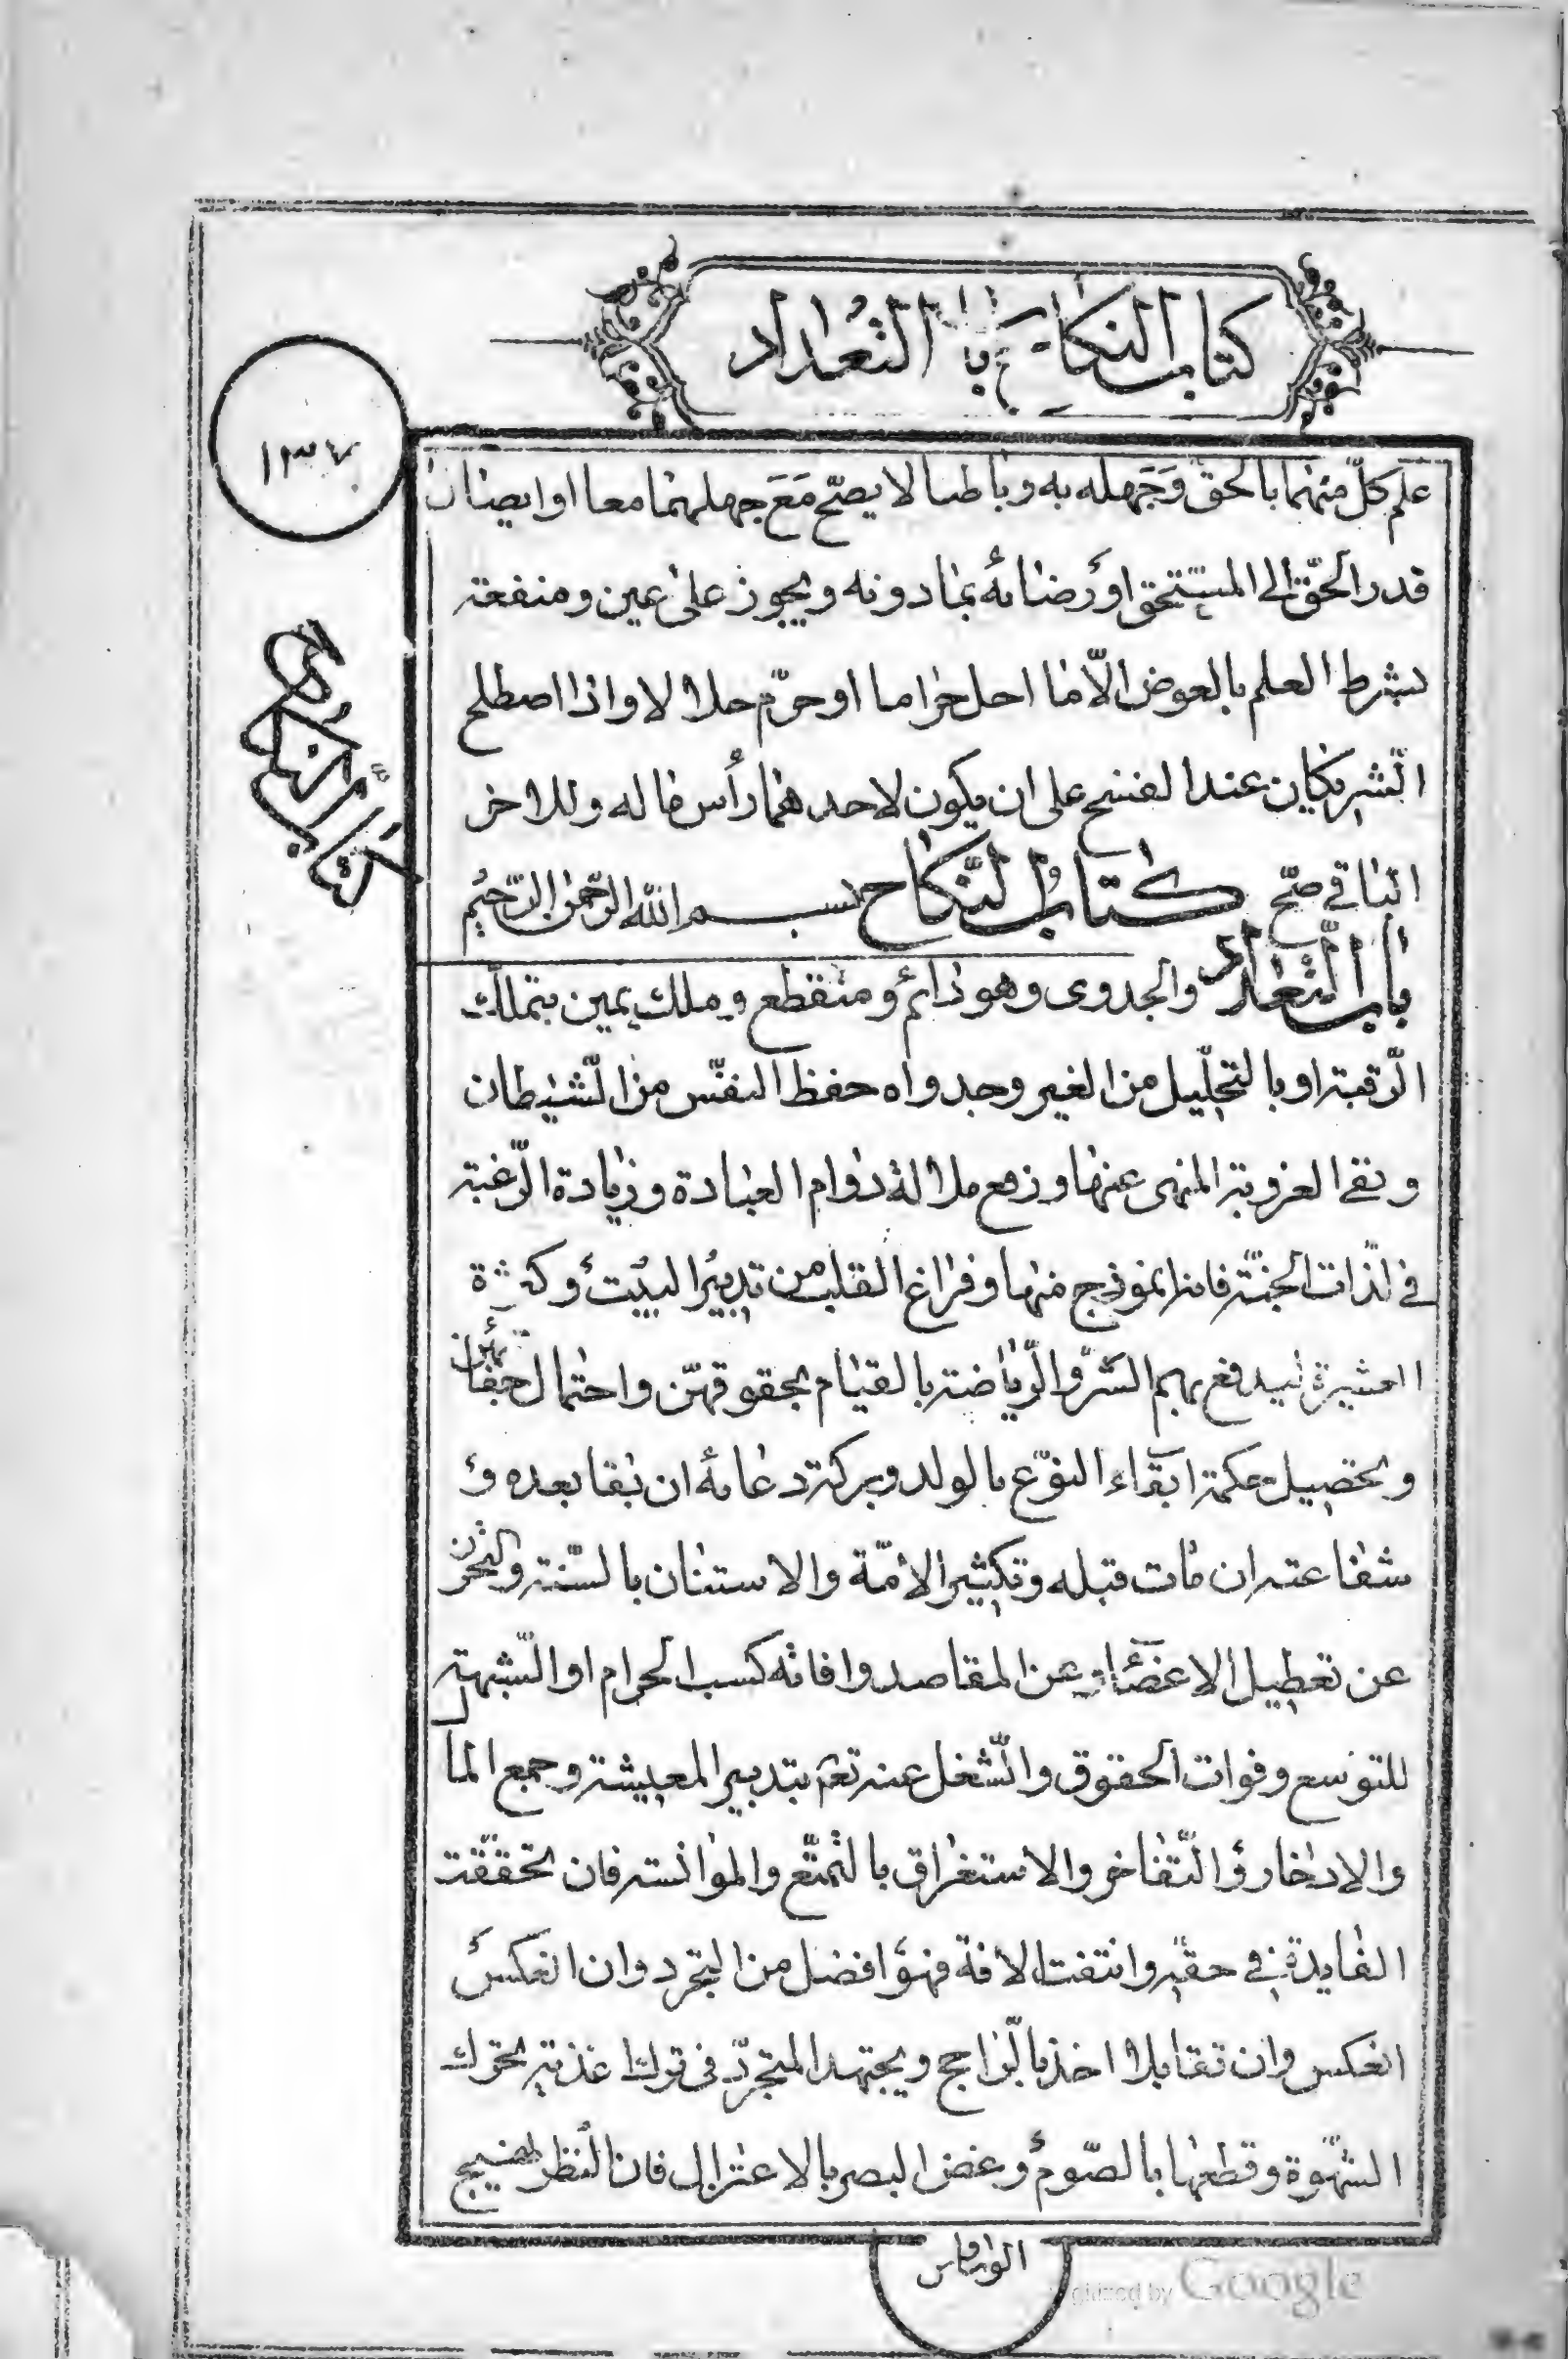 كتاب النكاح باب التعداد
١٣٤
علم كلّ منهما بالحق وَجَهله به وباطنا لا يصحّ مَعَ جهلهما معا او ايصال
قدر الحقّ الى المستحق او رضائه بما دونه ويجوز على عين ومنفعة
بشرط العلم بالعوض الّا ما احل حراما او حرّم حلالا واذا اصطلح
الشريكان عند الفسخ على ان يكون لاحدهما رأس ماله وللاخر
الباقي صحّ كتابُ النّكاح بسم الله الرّحمن الرّحيم
باب التعداد والجدوى وهو دائم ومنقطع وملك يمين بتملّك
الرّقبة او بالتحليل من الغير وجدواه حفظ النفس من الشيطان
ونفى العزوبة المنهى عنها ودفع ملالة دوام العبادة وزيادة الرّغبة
في لذّات الجنّة فانه انموذج منها وفراغ القلب من تدبير البيت وكثرة
العشيرة ليدفع بهم الشرّ والرّياضة بالقيام بحقوقهنّ واحتمال جفائهن
وتحصيل حكمة ابقاء النوع بالولد وبركة دعائه ان بقا بعده و
شفاعته ان مات قبله وتكثير الامّة والاستنان بالسّنة والتحرز
عن تعطيل الاعضاء عن المقاصد وافاته كسب الحرام او الشبهة
للتوسع وفوات الحقوق والشغل عنه تعالى بتدبير المعيشة وجمع المال
والادخار والتّفاخر والاستغراق بالتمتّع والموانسة فان تحققت
الفايدة في حقه وانتفت الافة فهو افضل من التجرد وان انعكس
انعكس وان تقابلا اخذ بالرّاجح ويجتهد المتجرّد في ترك اغذية تحرك
الشهوة وقطعها بالصّوم وغض البصر بالاعتزال فان النظر مهيج
الوساوس
كتاب النكاح
Digitized by Google